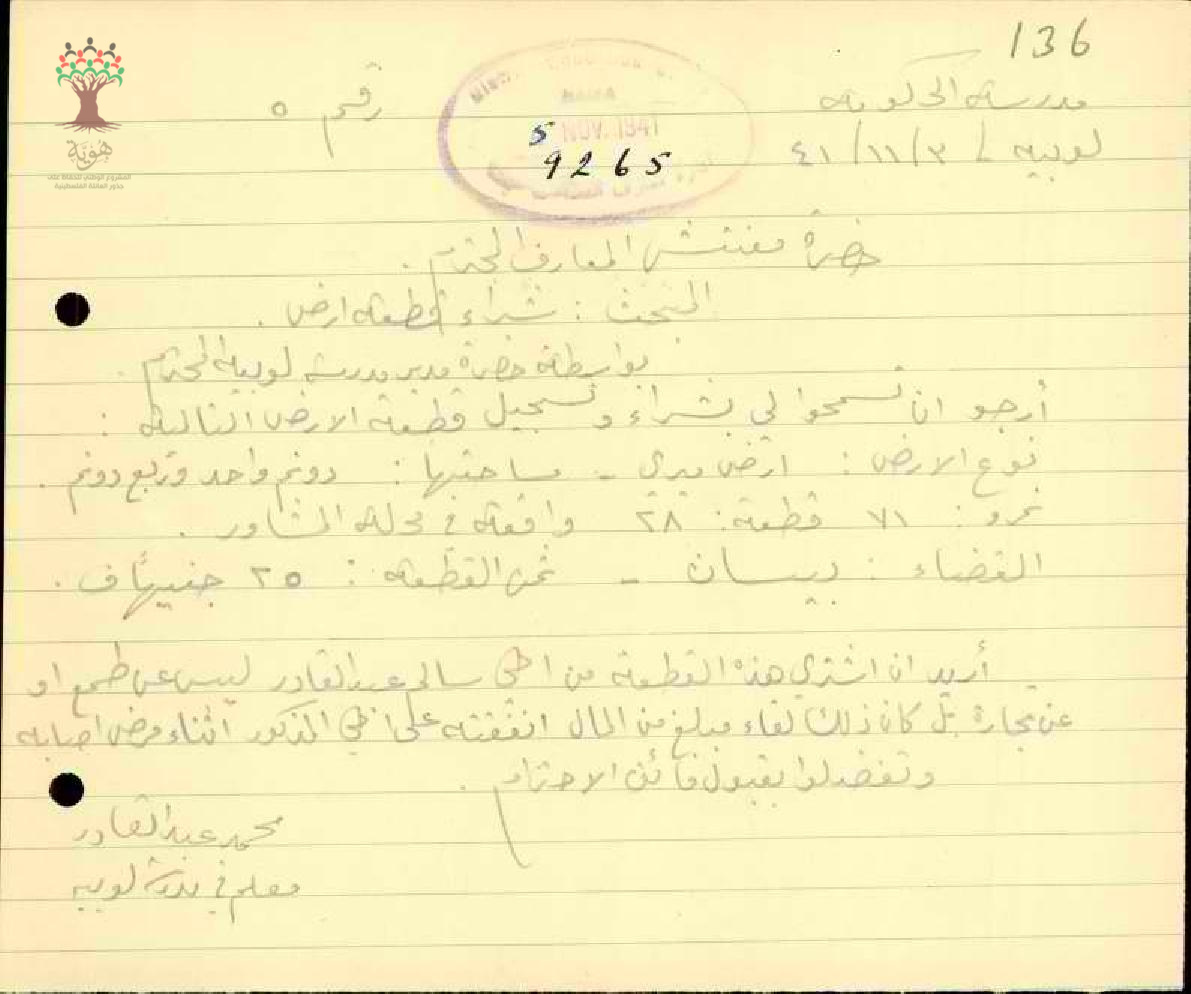 136
مدرسة الحكومة
رقم ٥
لوبيه / ٣/١١/٤١
HAIFA
5 NOV. 1941
9265
هوية
المشروع الوطني للحفاظ على
جذور العائلة الفلسطينية
حضرة مفتش المعارف المحترم .
البحث : شراء قطعة ارض .
بواسطة حضرة مدير مدرسة لوبية المحترم .
أرجو ان تسمحوا لي بشراء وتسجيل قطعة الارض التالية :
نوع الارض : ارض ميري - مساحتها : دونم واحد وربع دونم .
نمرو : ٧١ قطعة : ٢٨ واقعة في محلة
القضاء : بيسان - ثمن القطعة : ٢٥ جنيهاً ف .
أريد ان اشتري هذه القطعة من اخي سالم عبد القادر ليس عن طمع او
عن تجارة بل كان ذلك لقاء مبلغ من المال انفقته على اخي المذكور اثناء مرض اصابه
وتفضلوا بقبول فائق الاحترام .
محمد عبد القادر
معلم في مدرسة لوبيه